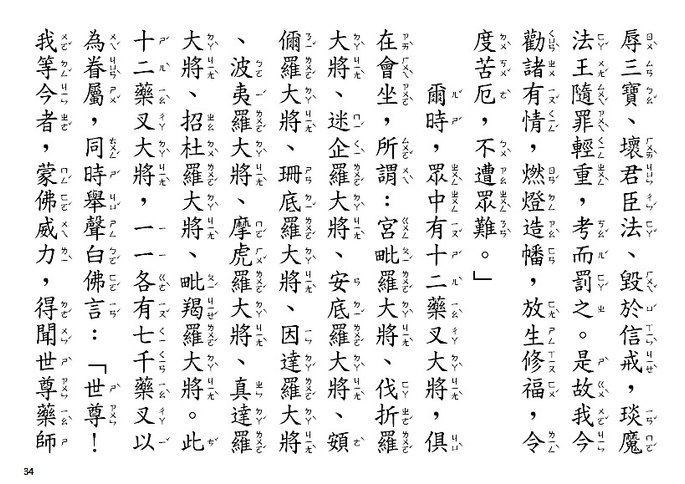 辱三寶、壞君臣法、毀於信戒，琰魔
法王隨罪輕重，考而罰之。是故我今
勸諸有情，燃燈造幡，放生修福，令
度苦厄，不遭眾難。」
爾時，眾中有十二藥叉大將，俱
在會坐，所謂：宮毗羅大將、伐折羅
大將、迷企羅大將、安底羅大將、頞
儞羅大將、珊底羅大將、因達羅大將
、波夷羅大將、摩虎羅大將、真達羅
大將、招杜羅大將、毗羯羅大將。此
十二藥叉大將，一一各有七千藥叉以
為眷屬，同時舉聲白佛言：「世尊！
我等今者，蒙佛威力，得聞世尊藥師
34